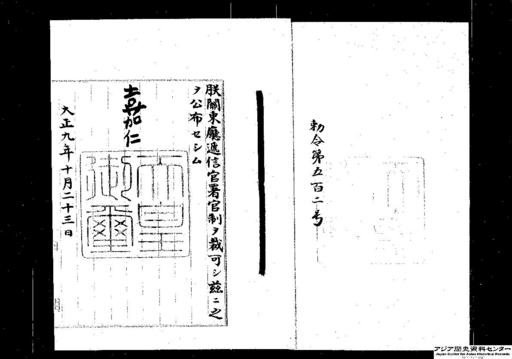 勅令第五百二号
朕關東廳逓信官署官制ヲ裁可シ茲ニ之
ヲ公布セシム
嘉仁
天皇御璽
大正九年十月二十三日
アジア歴史資料センター
Japan Center for Asian Historical Records